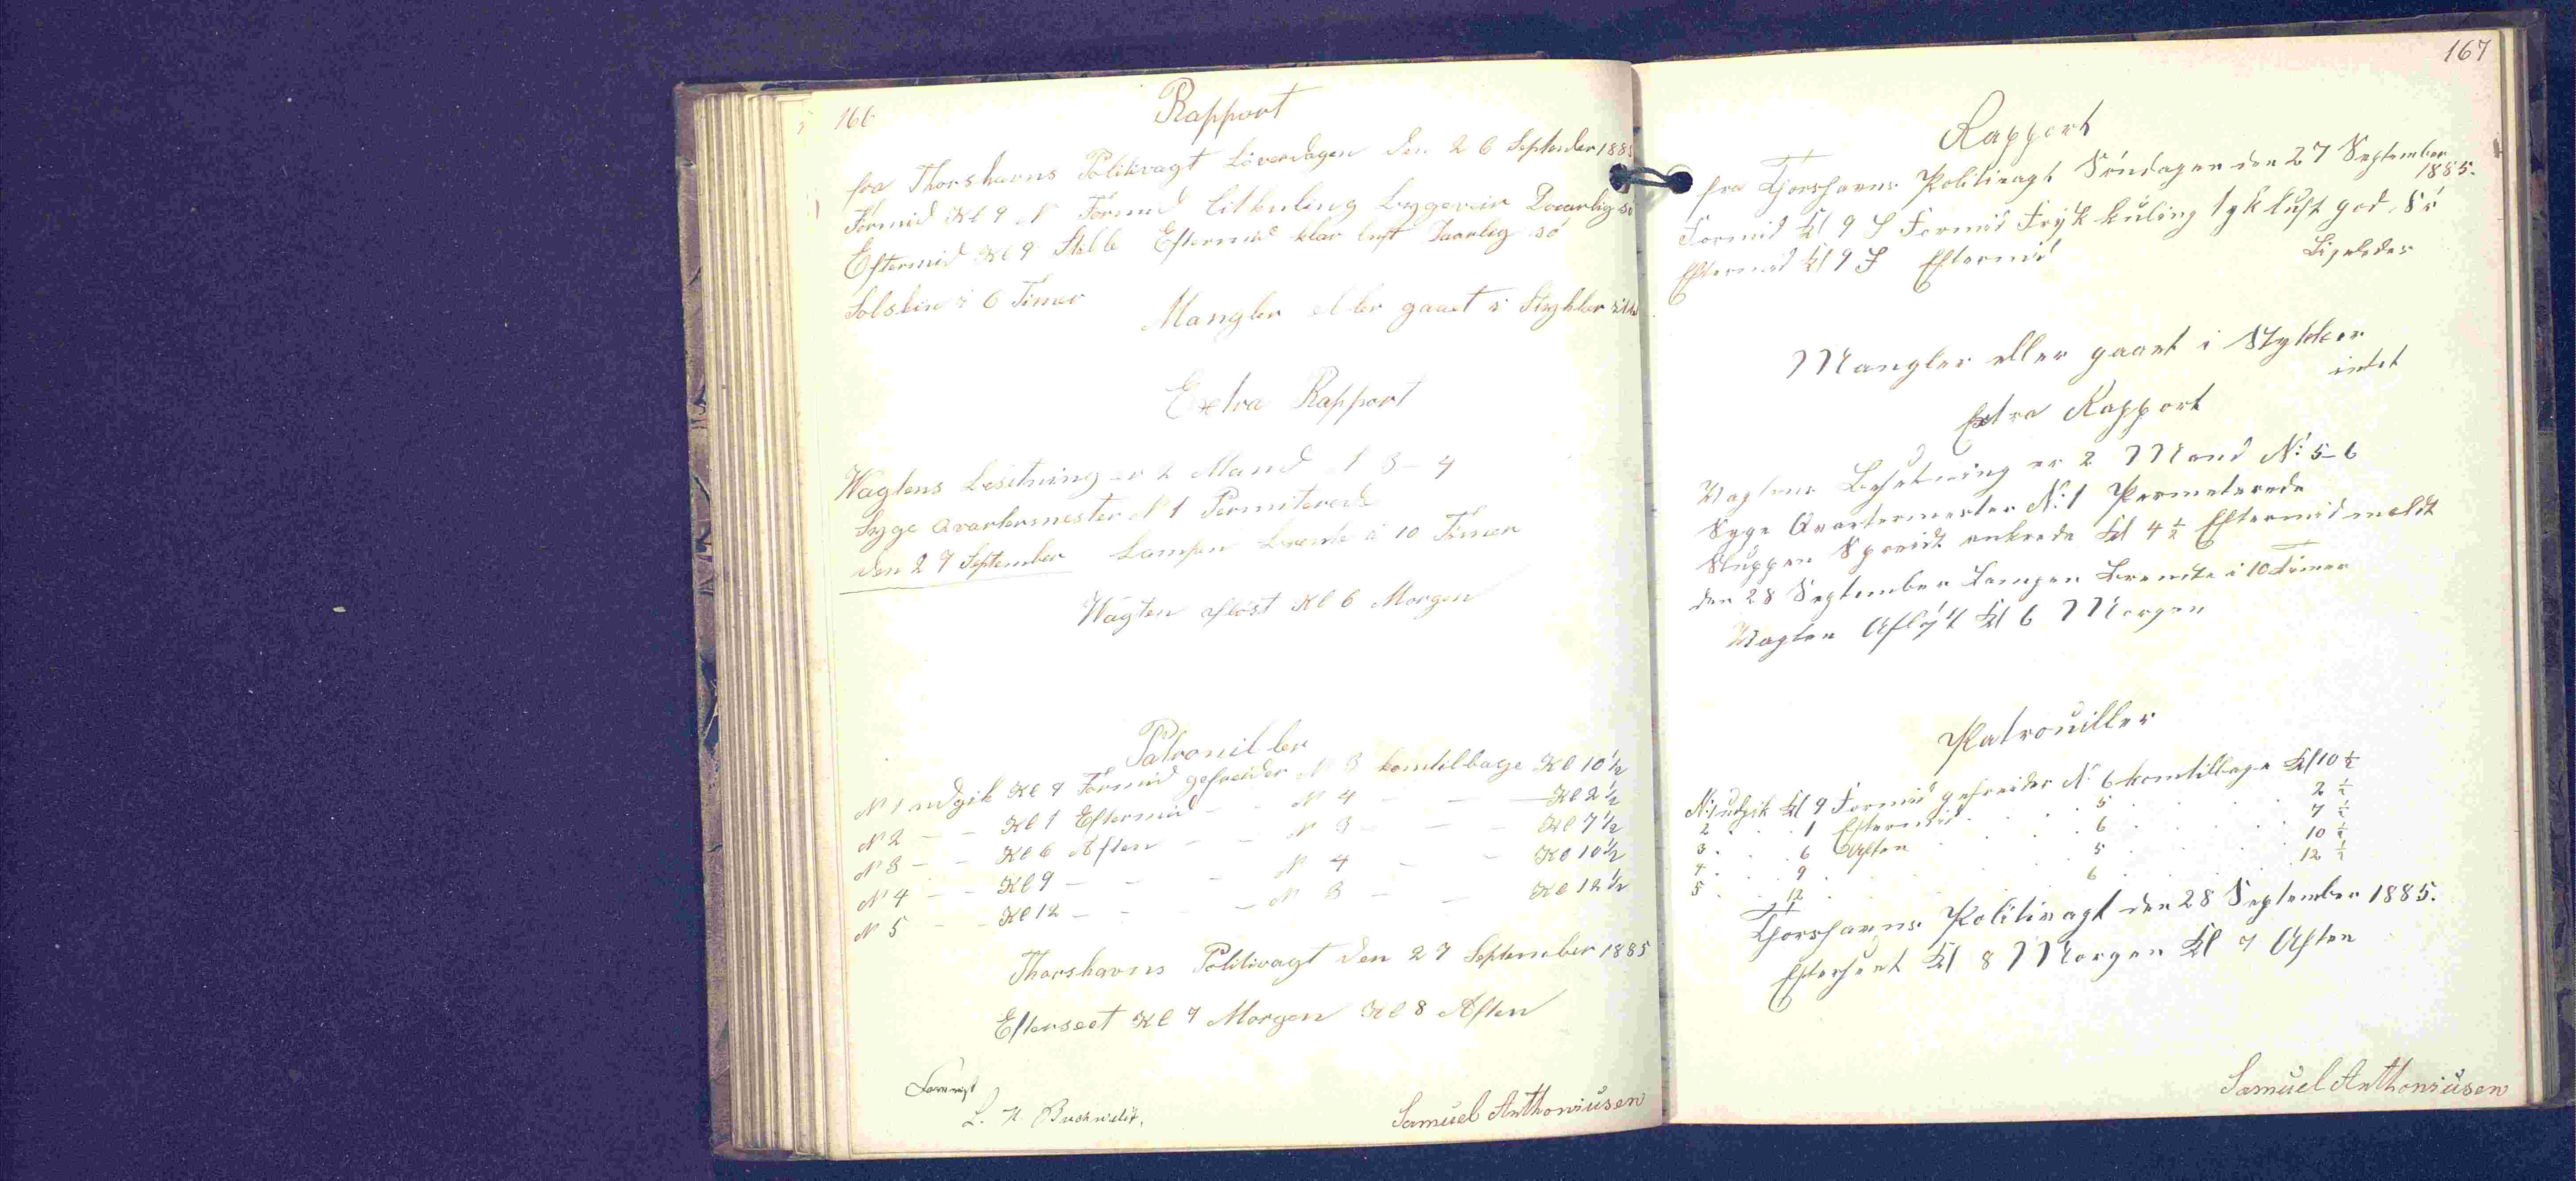 166
Rapport
fra Thorshavns Politivagt Löverdagen den 26 September 1885
Formid Kl 9 N Formid litkuling bygeveir Daarlig sö
Eftermid Kl 9 Stille Eftermid klar luft Daarlig sö
Solskin i 6 Timer
Mangler eller gaaet i Stykker
Extra Rapport
Wagtens besetning er 2 Mand N 3-4
Syge Qvartermester N 1 Permiterede
den 27 September Lampen brente i 10 Timer
Wagten aflöst Kl 6 Morgen
Patrouiller
N 1 udgik Kl 9 Formid gefreider N 3 komtilbage Kl 10 1/2
N 2 - - Kl 1 Eftermid - - N 4 - - Kl 2 1/2
N 3 - - Kl 6 Aften - - N 3 - - Kl 7 1/2
N 4 - - Kl 9 - - - N 4 - - Kl 10 1/2
N 5 - - Kl 12 - - - N 3 - - Kl 12 1/2
Thorshavns Politivagt den 27 September 1885
Efterseet Kl 7 Morgen Kl 8 Aften
L. H. Buchwaldt.
Samuel Anthoniusen
167
Rapport
fra Thorshavns Politivagt Söndagen den 27 September
1885.
Formid Kl 9 S Formid Frisk kuling tyk luft god Sö
Eftermid Kl 9 S Eftermid
Ligeledes
Mangler eller gaaet i Stykker
intet
Extra Rapport
Vagtens Besetning er 2 Mand N: 5-6
Syge Qvartermester N: 1 Permeterede
Sluppen ankrede Kl 4 1/2 Eftermid meldt
den 28 September Lampen brendte i 10 Timer
Vagten Aflöst Kl 6 Morgen
Patrouiller
N: 1 udgik Kl 9 Formid gefreider N: 6 komtilbage Kl 10 1/2
2 . . 1 Eftermid . . 5 . . 2 1/2
3 . . 6 Aften . . 6 . . 7 1/2
4 . . 9 . . 5 . . 10 1/2
5 . . 12 . . 6 . . 12 1/2
Thorshavns Politivagt den 28 September 1885.
Efterseet Kl 8 Morgen Kl 7 Aften
Samuel Anthoniusen